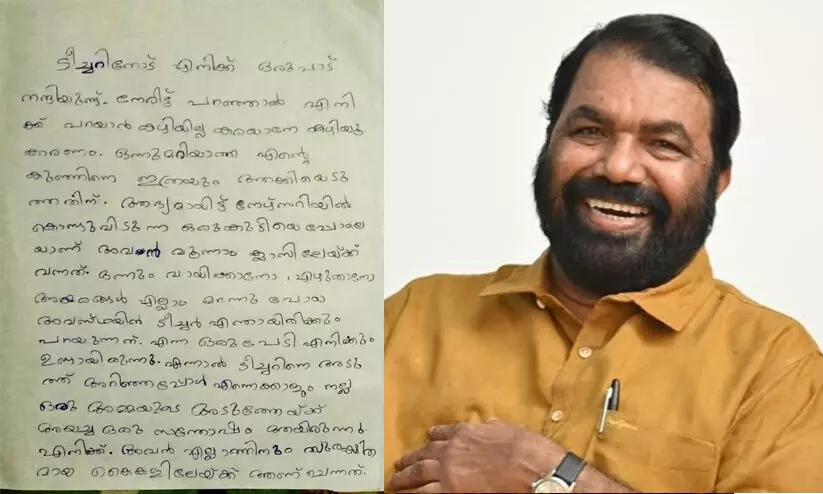 ടീച്ചറിനോട് എനിക്ക് ഒരുപാട്
നന്ദിയുണ്ട്. നേരിട്ട് പറഞ്ഞാൽ എനി
ക്ക് പറയാൻ കഴിയില്ല കരയാനേ കഴിയൂ
കാരണം. ഒന്നുമറിയാത്ത എന്റെ
കുഞ്ഞിനെ ഇത്രയും ആക്കിയെടു
ത്തതിന്. ആദ്യമായിട്ട് നേഴ്സറിയിൽ
കൊണ്ടുവിടുന്ന ഒരുകുട്ടിയെപോലെ
യാണ് അവൻ മൂന്നാം ക്ലാസിലേയ്ക്ക്
വന്നത്. ഒന്നും വായിക്കാനോ, എഴുതാനോ
അക്ഷരങ്ങൾ എല്ലാം മറന്നു പോയ
അവസ്ഥയിൽ ടീച്ചർ എന്തായിരിക്കും
പറയുന്നത്. എന്ന ഒരുപേടി എനിക്കും
ഉണ്ടായിരുന്നു. എന്നാൽ ടീച്ചറിനെ അടു
ത്ത് അറിഞ്ഞപ്പോൾ എന്നെക്കാളും നല്ല
ഒരു അമ്മയുടെ അടുത്തേയ്ക്ക്
അയച്ച ഒരു സന്തോഷം ആയിരുന്നു
എനിക്ക്. അവൻ എല്ലാത്തിനും സുരക്ഷിത
മായ കൈകളിലേയ്ക്ക് ആണ് ചെന്നത്.